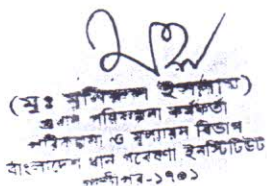 (মুঃ
প্রধান পরিকল্পনা কর্মকর্তা
পরিকল্পনা ও মূল্যায়ন বিভাগ
বাংলাদেশ ধান গবেষণা ইনস্টিটিউট
গাজীপুর-১৭০১